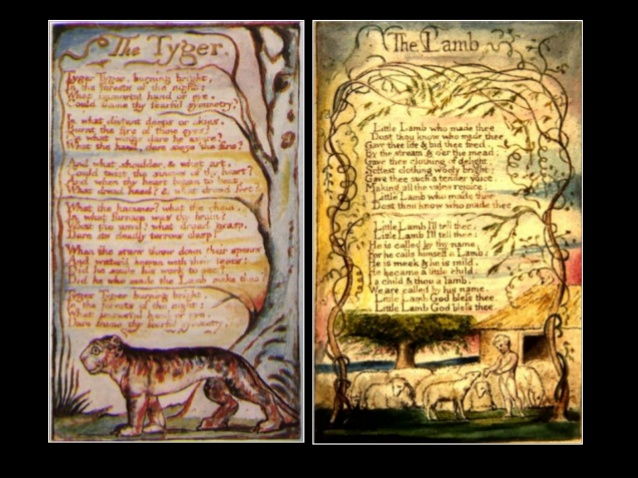 The Tyger.
Tyger Tyger, burning bright,
In the forests of the night;
What immortal hand or eye,
Could frame thy fearful symmetry?
In what distant deeps or skies,
Burnt the fire of thine eyes?
On what wings dare he aspire?
What the hand, dare sieze the fire?
And what shoulder, & what art,
Could twist the sinews of thy heart?
And when thy heart began to beat,
What dread hand? & what dread feet?
What the hammer? what the chain,
In what furnace was thy brain?
What the anvil? what dread grasp,
Dare its deadly terrors clasp?
When the stars threw down their spears
And water'd heaven with their tears:
Did he smile his work to see?
Did he who made the Lamb make thee?
Tyger Tyger burning bright,
In the forests of the night:
What immortal hand or eye,
Dare frame thy fearful symmetry?
The Lamb
Little Lamb who made thee
Dost thou know who made thee
Gave thee life & bid thee feed,
By the stream & o'er the mead;
Gave thee clothing of delight,
Softest clothing wooly bright;
Gave thee such a tender voice,
Making all the vales rejoice:
Little Lamb who made thee
Dost thou know who made thee
Little Lamb I'll tell thee,
Little Lamb I'll tell thee;
He is called by thy name,
For he calls himself a Lamb:
He is meek & he is mild,
He became a little child:
I a child & thou a lamb,
We are called by his name.
Little Lamb God bless thee.
Little Lamb God bless thee.